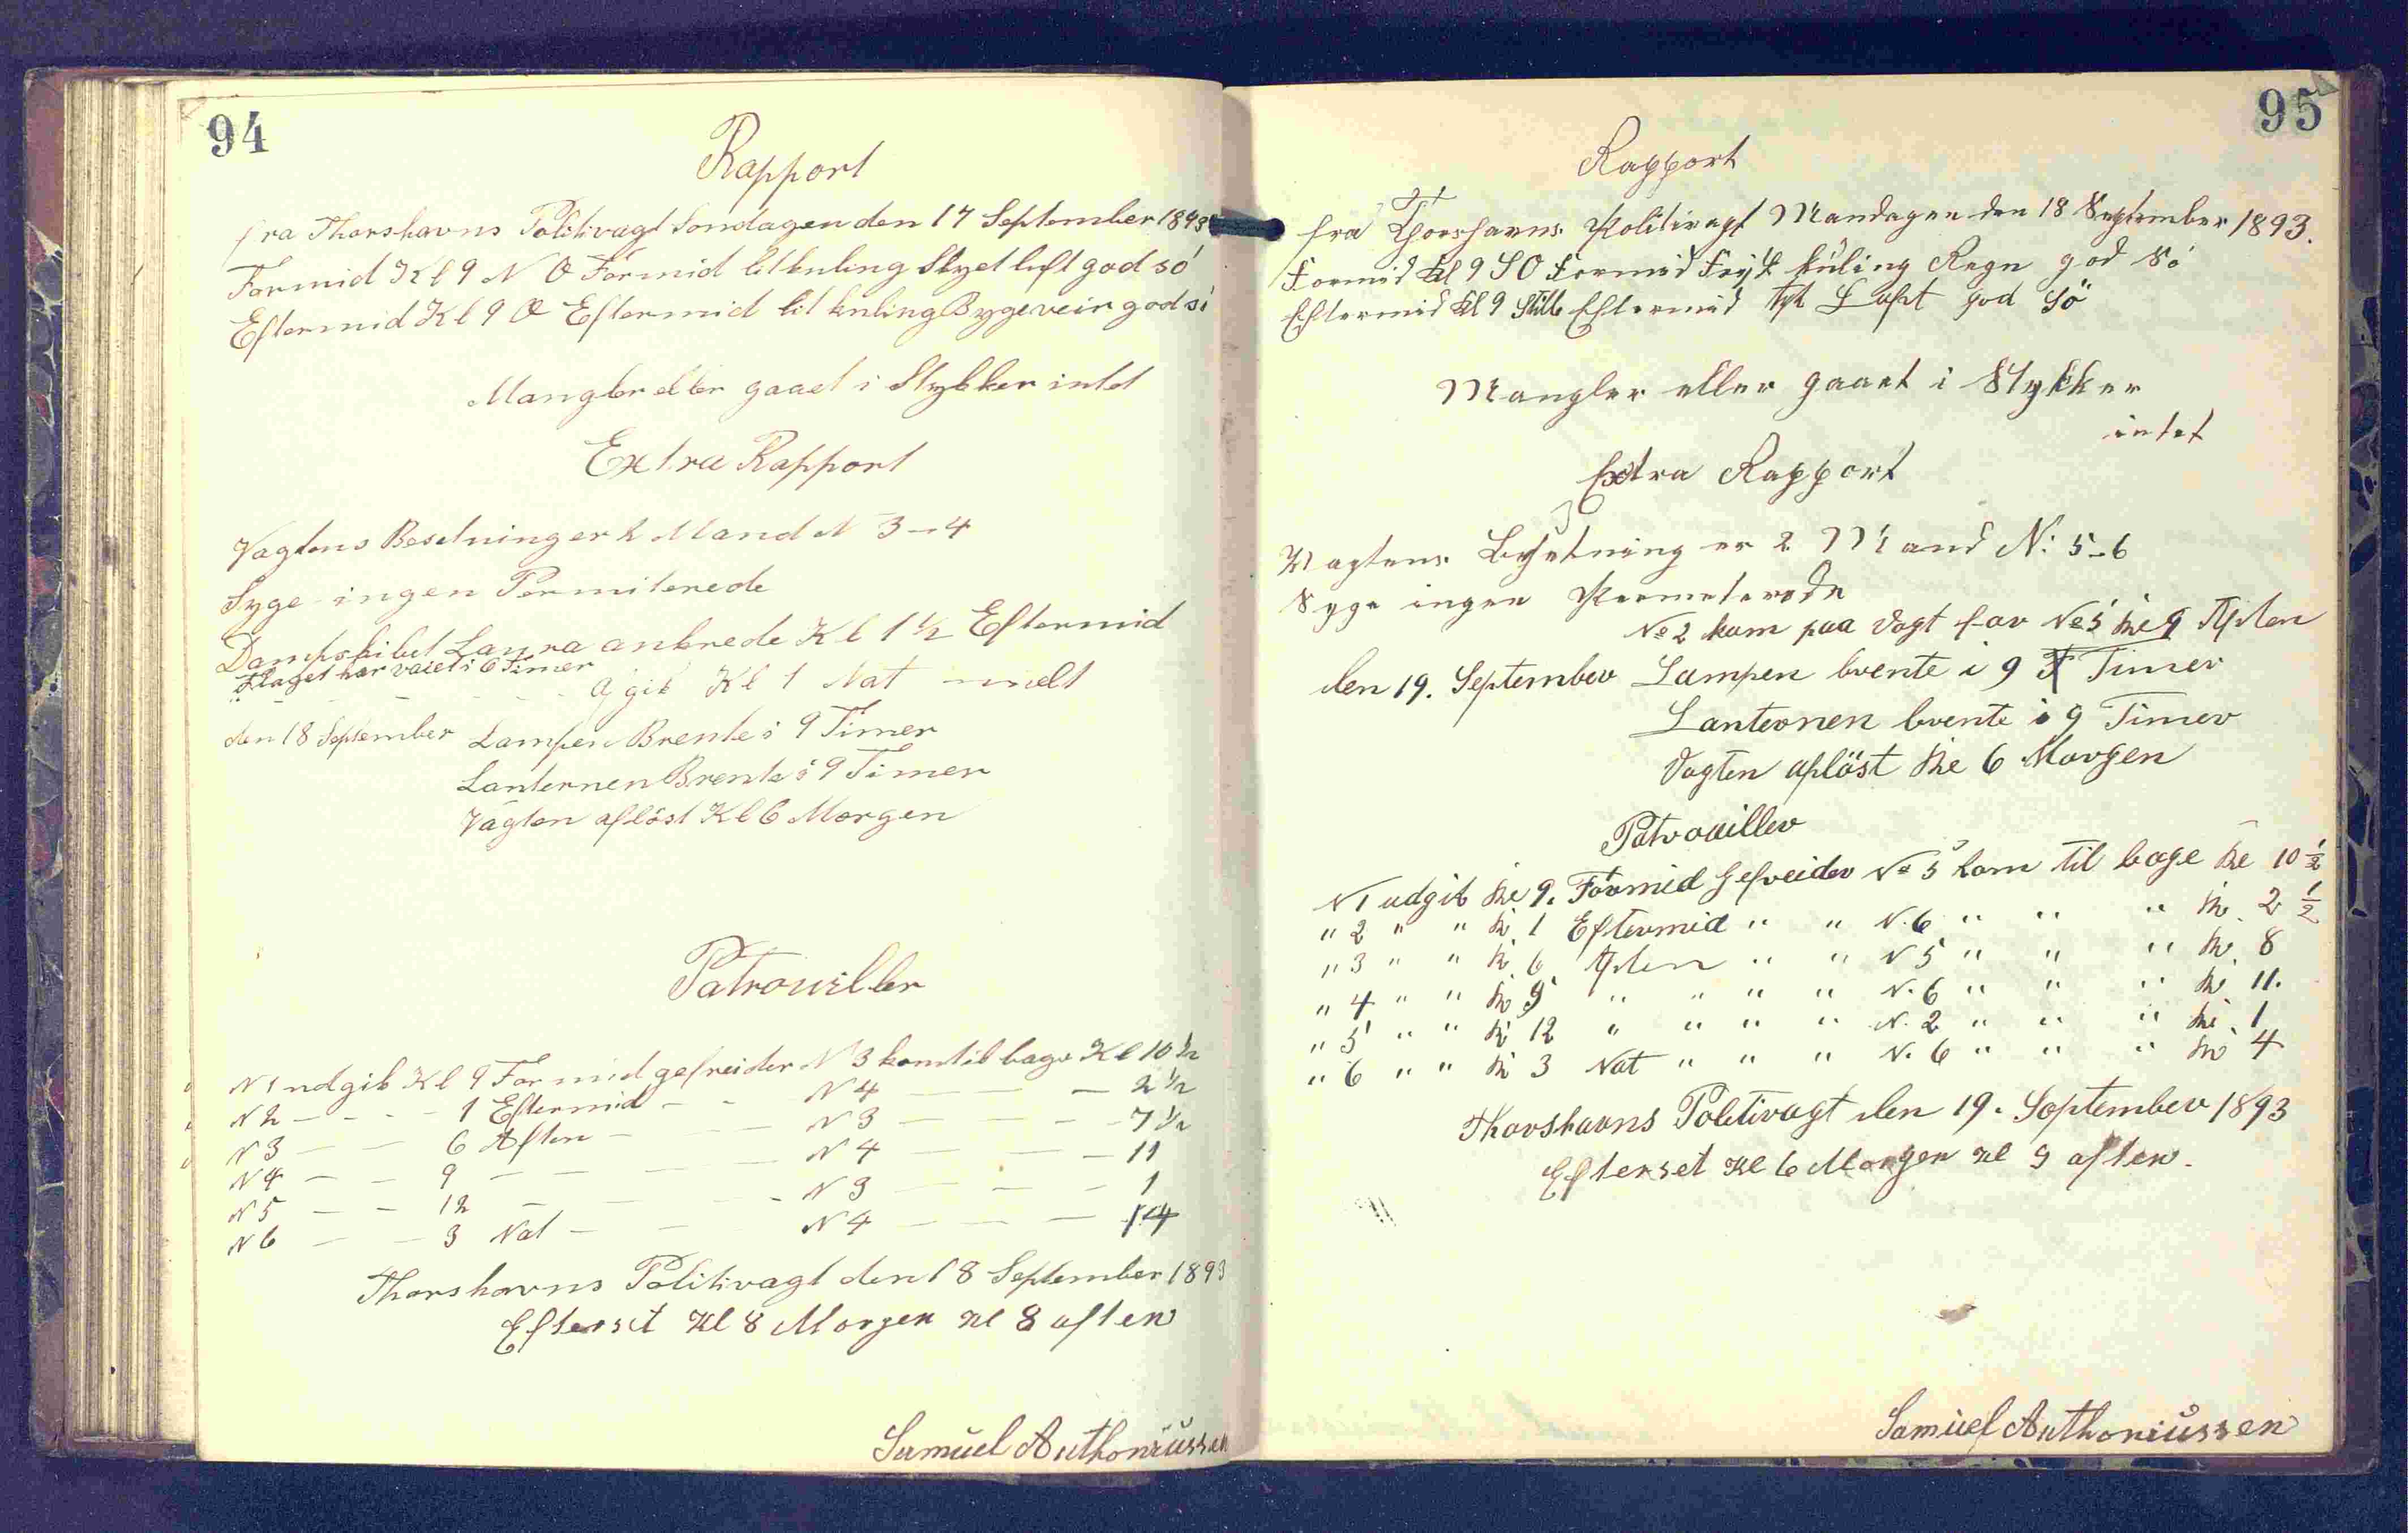 94
Rapport
fra Thorshavns Politivagt Sondagen den 17 September 1893
Formid Kl 9 N O Formid litkuling Skyet luft god sö
Eftermid Kl 9 O Eftermid lit kuling Bygeveir god sö
Mangler eller gaaet i Stykker intet
Extra Rapport
Vagtens Besetning er 2 Mand N 3-4
Syge ingen Permiterede
Dampskibet Laura ankrede Kl 1 1/2 Eftermid
Flaget har vaiet i 6 Timer
" - - - - afgik Kl 1 Nat
den 18 September Lampen Brente i 9 Timer
Lanternen Brente i 9 Timer
Vagten aflöst Kl 6 Morgen
Patrouiller
N 1 udgik Kl 9 Formid gefreider N 3 kom til bage Kl 10 1/2
N 2 - - - - 1 Eftermid - - N 4 - - 2 1/2
N 3 - - 6 Aften - - N 3 - - - 7 1/2
N 4 - - 9 - - - - N 4 - - - 11
N 5 - - 12 - - - - N 3 - - - 1
N 6 - - 3 Nat - - N 4 - - - 4
Thorshavns Politivagt den 18 September 1893
Efterset Kl 8 Morgen Kl 8 aften
Samuel Anthoniussen
95
Rapport
fra Thorshavns Politivagt Mandagen den 18 September 1893.
Formid Kl 9 SO Formid Frisk kuling Regn god Sö
Eftermid Kl 9 Stille Eftermid tyk Luft god Sö
Mangler eller gaaet i Stykker
intet
Extra Rapport
Vagtens Besetning er 2 Mand N: 5-6
Syge ingen Permeterede
No 2 kom paa Vagt for No 5 Kl 9 Aften
den 19. September Lampen brente i 9 Timer
Lanternen brente i 9 Timer
Vagten aflöst Kl 6 Morgen
Patrouiller
N 1 udgik Kl 9. Formid Gefreider No 5 kom til bage Kl 10 1/2
" 2 " " Kl 1 Eftermid " " N. 6 " " " Kl. 2 1/2
" 3 " " Kl 6 Aften " " N 5 " " " Kl. 8
" 4 " " Kl 9 " " " " N. 6 " " " Kl 11.
" 5 " " Kl 12 " " " " N. 2 " " " Kl. 1
" 6 " " Kl 3 Nat " " " N. 6 " " " Kl 4
Thorshavns Politivagt den 19. September 1893
Efterset Kl 6 Morgen Kl 9 aften.
Samuel Anthoniussen